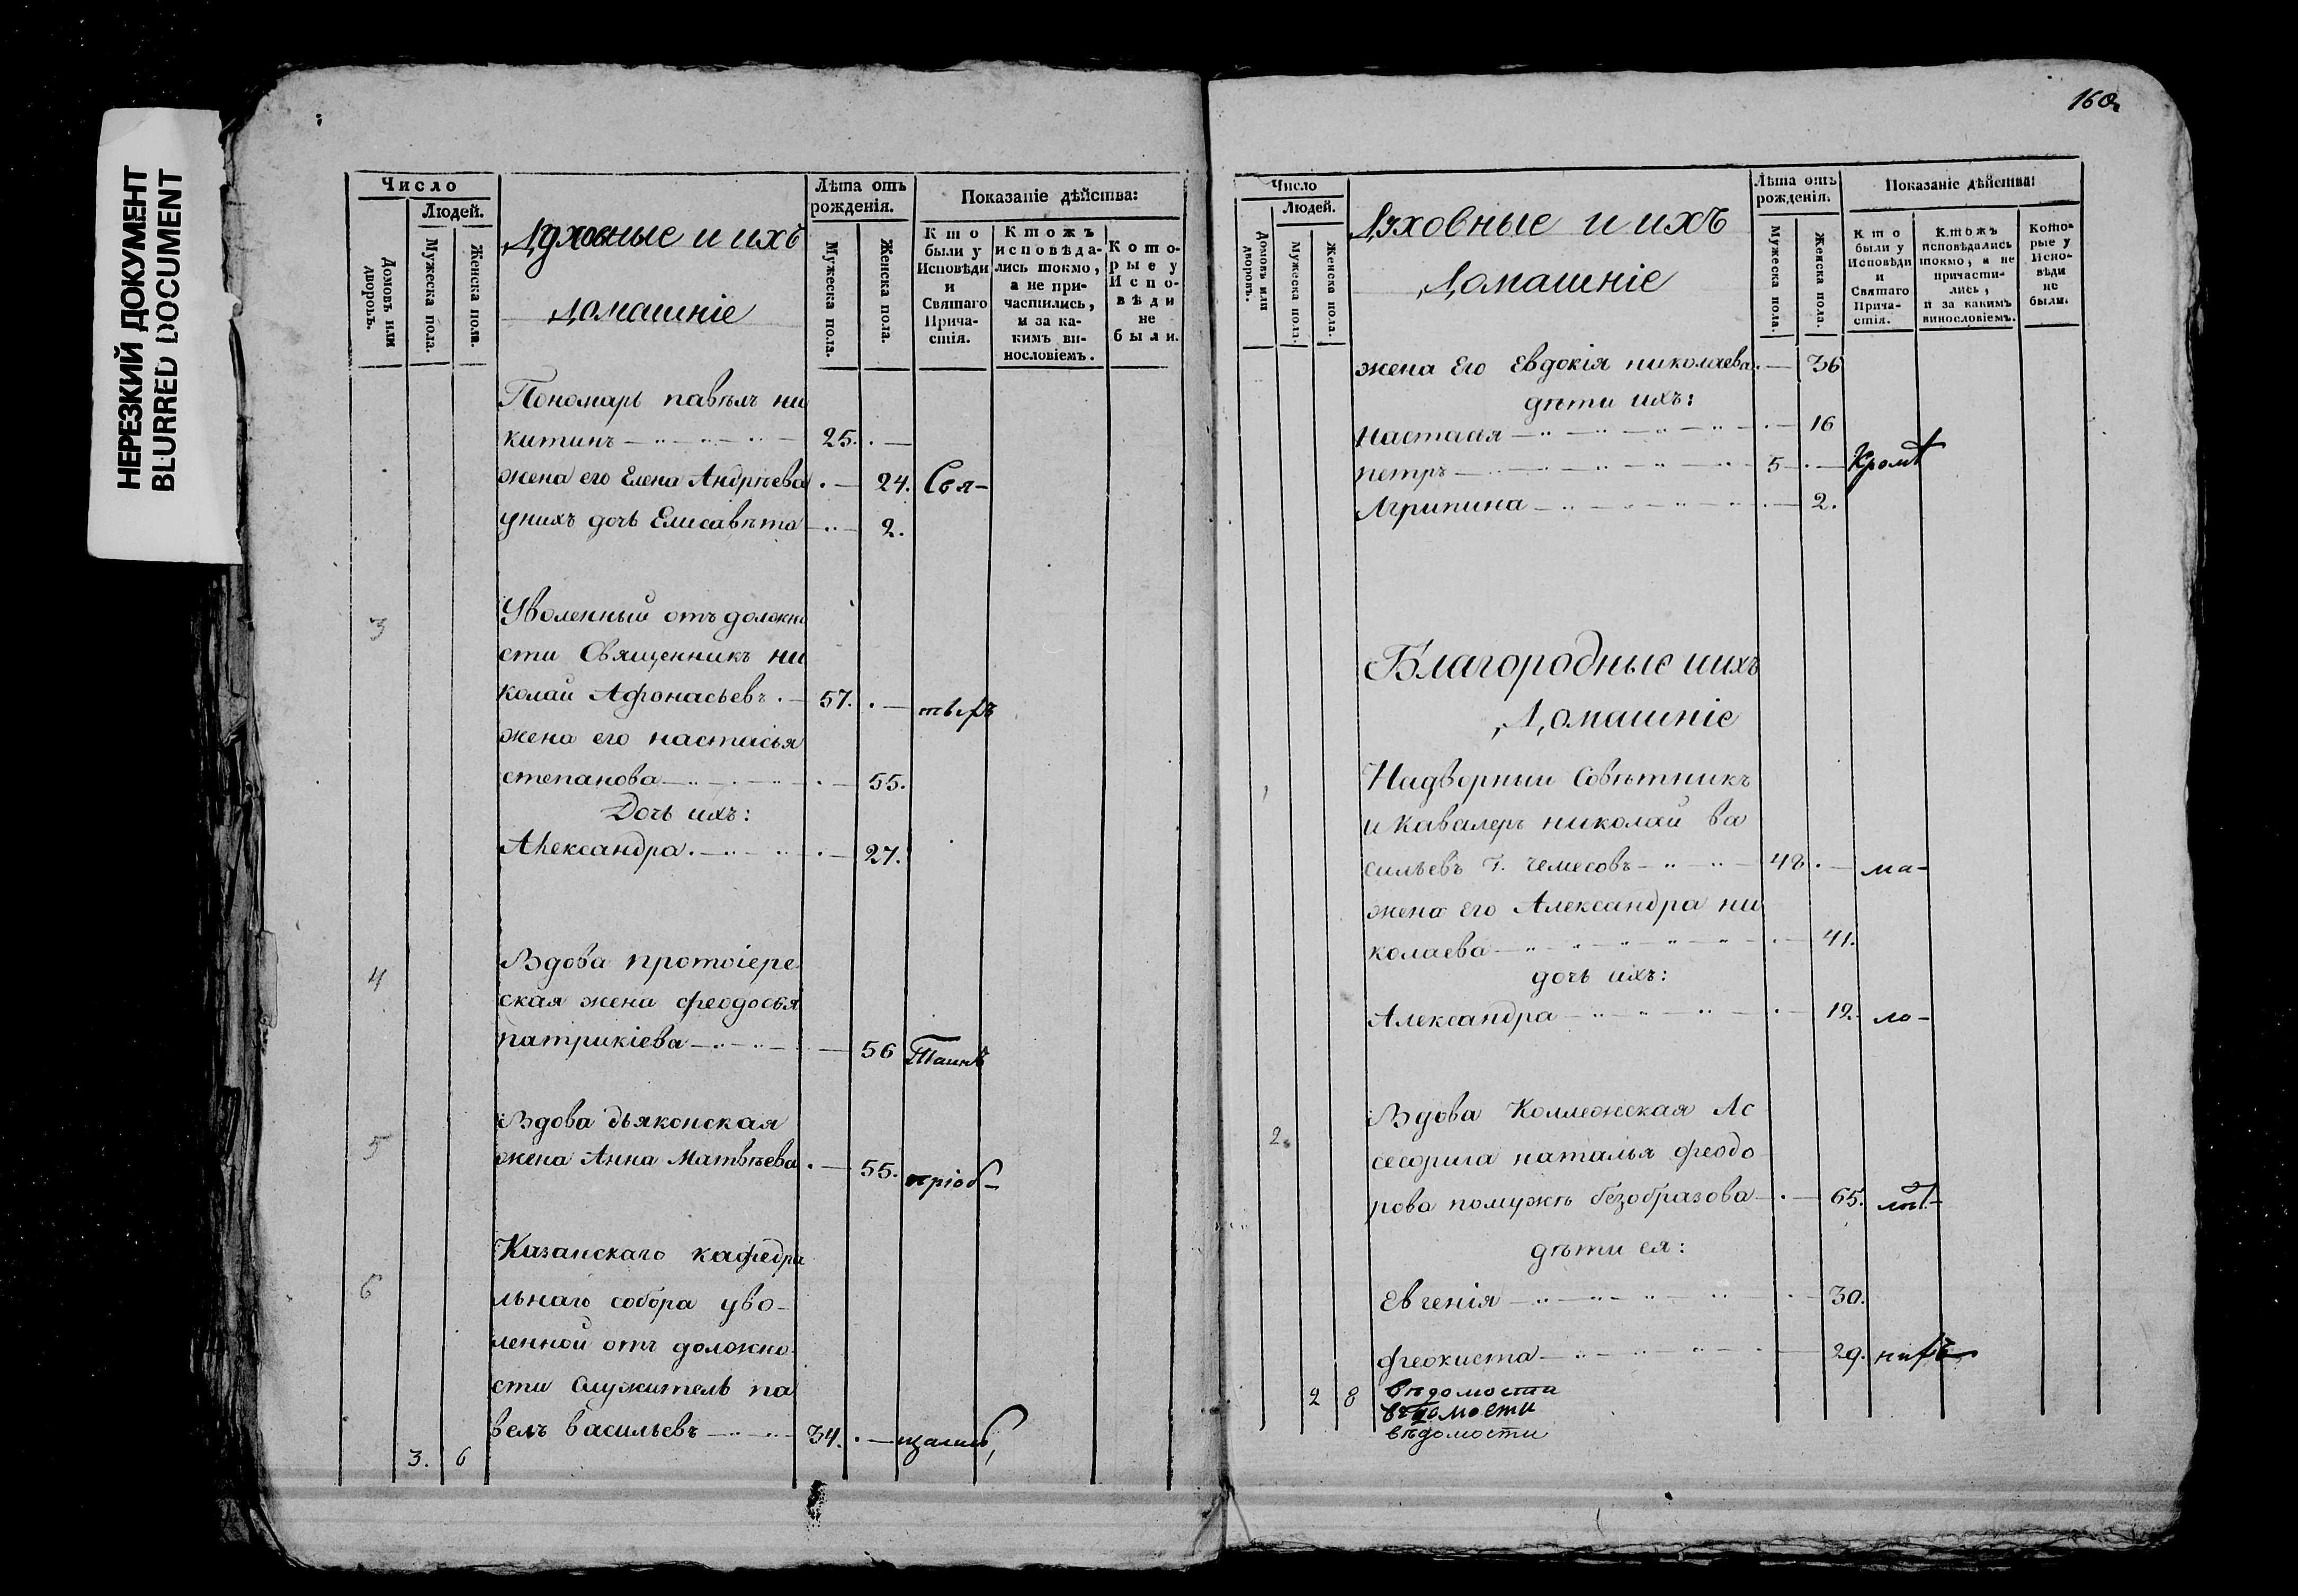 НЕРЕЗКИЙ ДОКУМЕНТ
BLURRED DOCUMENT
Число
Людей.
Домовъ или дворовъ.
Мужеска пола.
Женска пола.
Духовные и ихъ
домашніе
Лѣта отъ рожденія.
Мужеска пола.
Женска пола.
Показаніе дѣйства:
Кто были у Исповѣди и Святаго Прича-стія.
Ктожъ исповѣда-лись токмо, а не при-частились, и за ка-кимъ ви-нословіемъ.
Кото-рые у Испо-вѣди не были.
Пономарь павѣлъ ни
китинъ 25.
жена его Елена Андрѣева 24. Свя-
унихъ дочь Елисавѣта 2.
3 Уволенный отъ должно
сти Священникъ ни
колаи Афонасьевъ 57.
жена его настасья
степанова 55.
Дочь ихъ:
Александра 27.
4 Вдова протоіере
ская жена феодосья
патрикіева 56 Таинъ
5 Вдова дьяконская
жена Анна Матвѣева 55. пріоб-
6 Казанскаго кафедра
льнаго собора уво-
ленной отъ должно-
сти служитель па
велъ васильевъ 34. щались,
3. 6
160
Число
Людей.
Домовъ или дворовъ.
Мужеска пола.
Женска пола.
Духовные и ихъ
Домашніе
Лѣта отъ рожденія.
Мужеска пола.
Женска пола.
Показаніе дѣйства:
Кто были у Исповѣди и Святаго Прича-стія.
Ктожъ исповѣдались токмо, а не причасти-лись, и за какимъ винословіемъ.
Кото-рые у Испо-вѣди не были.
жена Его Евдокія николаева 36
дѣти ихъ:
Настасія 16
петръ 5 Кромѣ
Агрипина 2.
Благородные иихъ
Домашніе
1 Надворныи Совѣтникъ
и Кавалеръ николаи ва
сильевъ г. чемесовъ 48 ма-
жена его Александра ни
колаева 41.
дочь ихъ:
Александра 12. ло-
2. Вдова Коллежская Ас
сесорша наталья феодо
рова помужѣ безобразова 65. лѣт-
дѣти ея:
Евгенія 30.
феоктиста 29.
2 8 вѣдомости
вѣдомости
вѣдомости